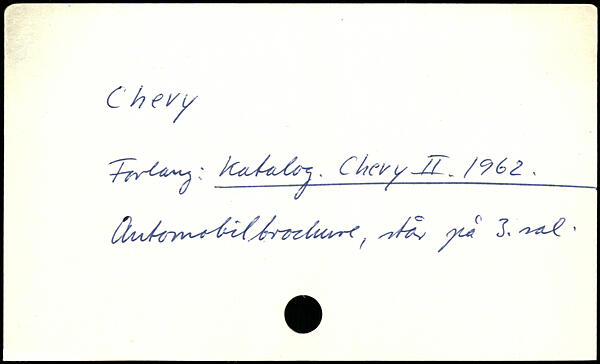 Chevy
Forlang: Katalog. Chevy II. 1962.
Automobilbrochure, står på 3. sal.